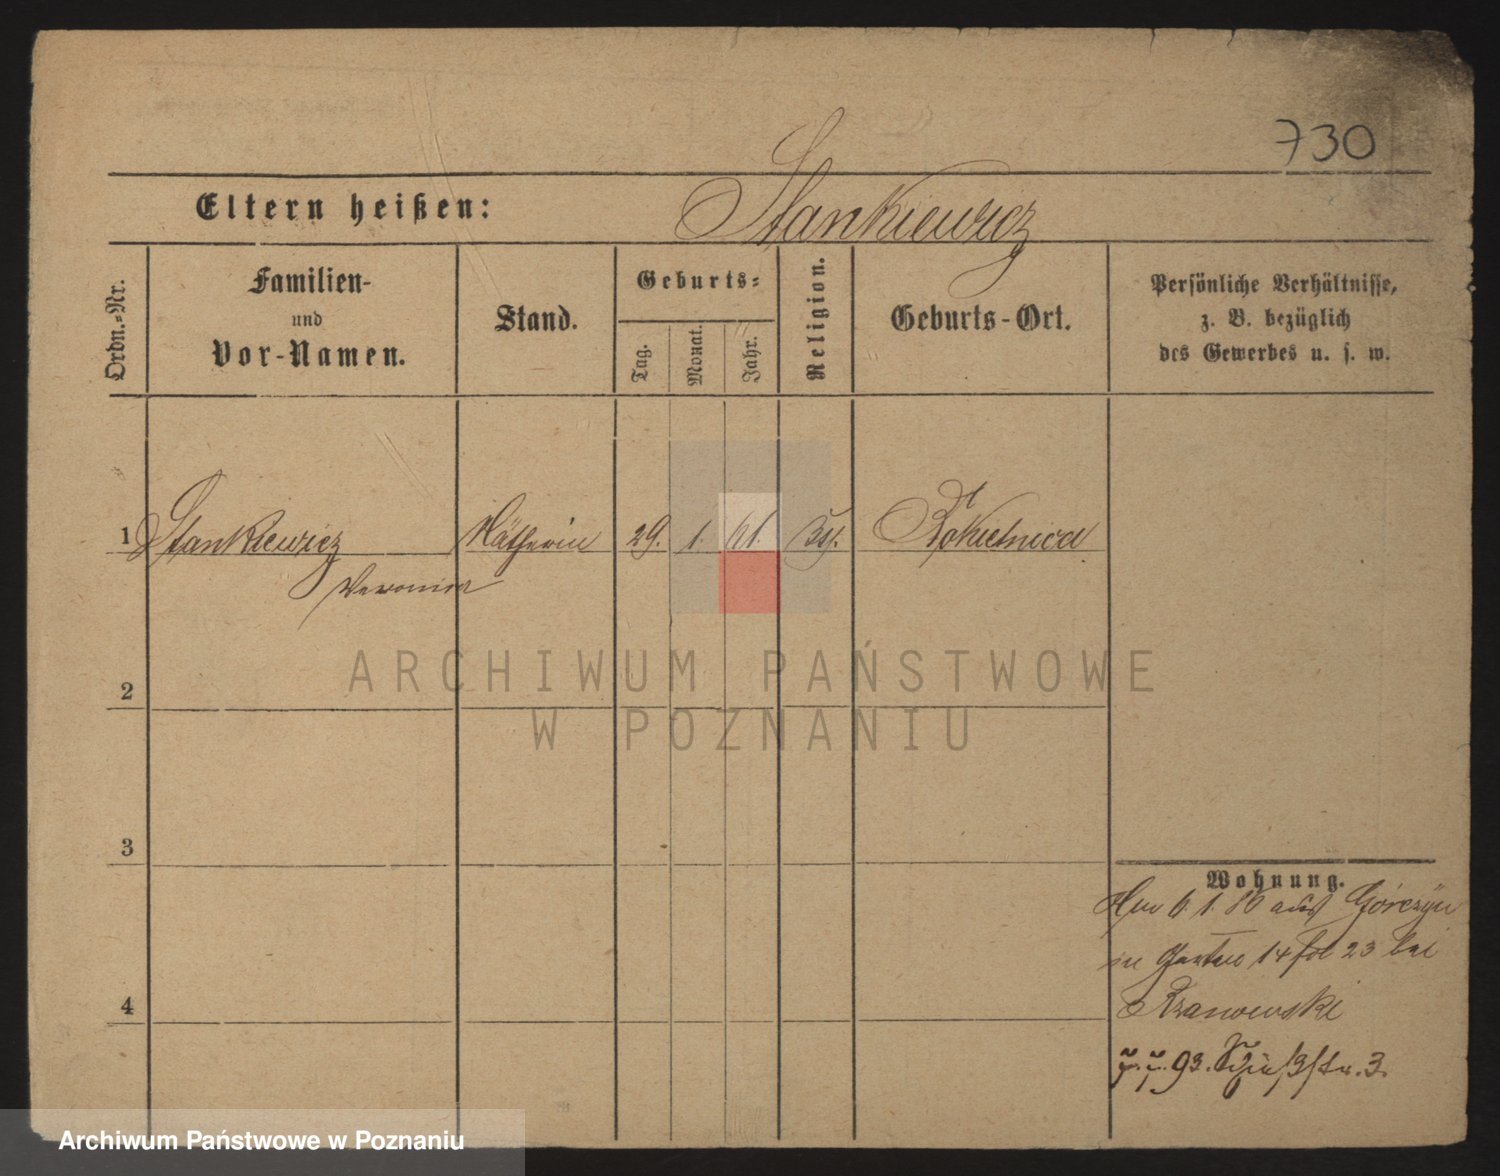 730
Eltern heißen: Stankiewicz
Ordn.-Nr.
Familien-
und
Vor-Namen.
Stand.
Geburts-
Tag.
Monat.
Jahr.
Religion.
Geburts-Ort.
Persönliche Verhältnisse,
z. B. bezüglich
des Gewerbes u. s. w.
1 Stankiewicz Nätherin 29. 1. 61. Rokietnica
Veronica
2
3
4
Wohnung.
6. 1. 86 aus Górczyn
in Garten 14 fol 23 bei
Rzanowski
93. 3.
ARCHIWUM PAŃSTWOWE
W POZNANIU
Archiwum Państwowe w Poznaniu